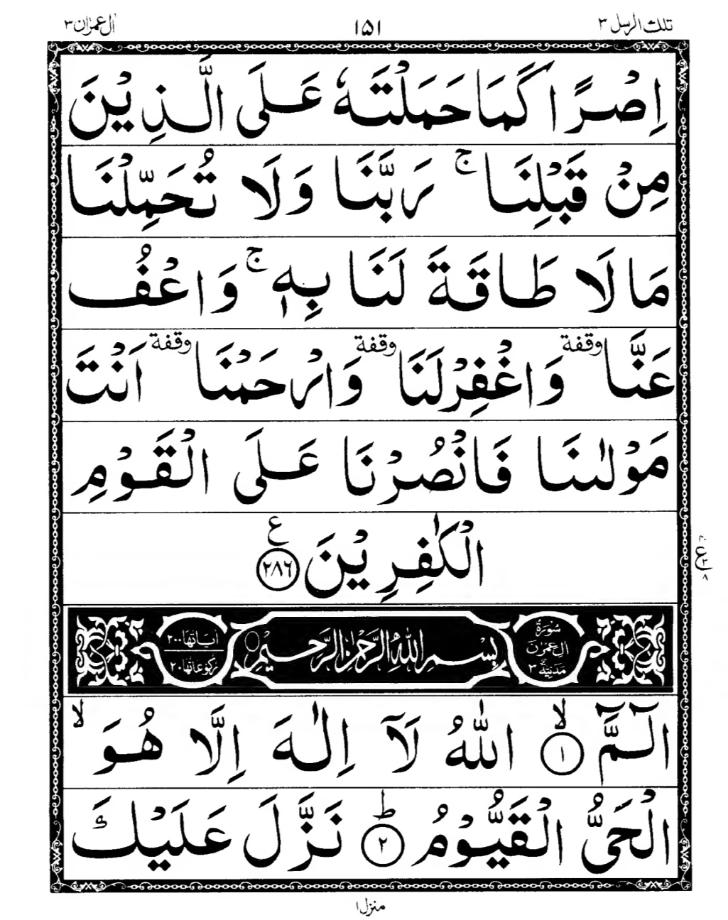 تلك الرسل ٣
١٥١
اٰل عمرٰن ٣
اِصْرًا كَمَا حَمَلْتَهٗ عَلَى الَّذِيْنَ
مِنْ قَبْلِنَا ۚ رَبَّنَا وَلَا تُحَمِّلْنَا
مَا لَا طَاقَةَ لَنَا بِهٖ ۚ وَاعْفُ
عَنَّا وقفة وَاغْفِرْلَنَا وقفة وَارْحَمْنَا وقفة اَنْتَ
مَوْلٰىنَا فَانْصُرْنَا عَلَى الْقَوْمِ
الْكٰفِرِيْنَ ﴿٢٨٦﴾ ع
سُوْرَةُ اٰل عِمْرٰنَ مَدَنِيَّةٌ ٣
بِسْمِ اللّٰهِ الرَّحْمٰنِ الرَّحِيْمِ
اٰيَاتُهَا ٢٠٠
رُكُوْعَاتُهَا ٢٠
الٓمّٓ ﴿١﴾ۙ اللّٰهُ لَآ اِلٰهَ اِلَّا هُوَ ۙ
الْحَيُّ الْقَيُّوْمُ ﴿٢﴾ؕ نَزَّلَ عَلَيْكَ
منزل ١